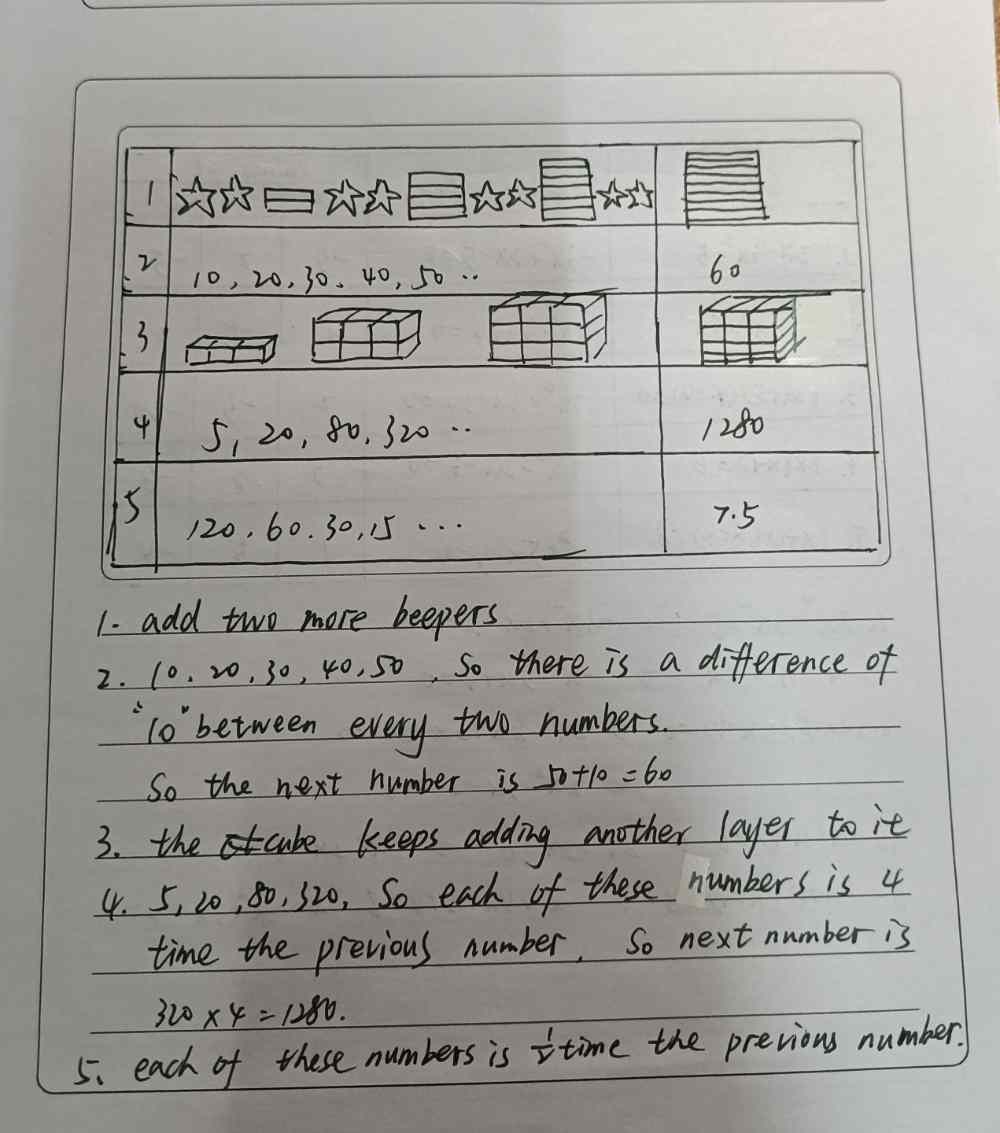 1
2 10, 20, 30, 40, 50 .. 60
3
4 5, 20, 80, 320 .. 1280
5 120, 60. 30, 15 ... 7.5
1. add two more beepers
2. 10, 20, 30, 40, 50, So there is a difference of
"10" between every two numbers.
So the next number is 50+10=60
3. the cube keeps adding another layer to it
4. 5, 20, 80, 320, So each of these numbers is 4
time the previous number, So next number is
320×4=1280.
5. each of these numbers is 1/2 time the previous number.